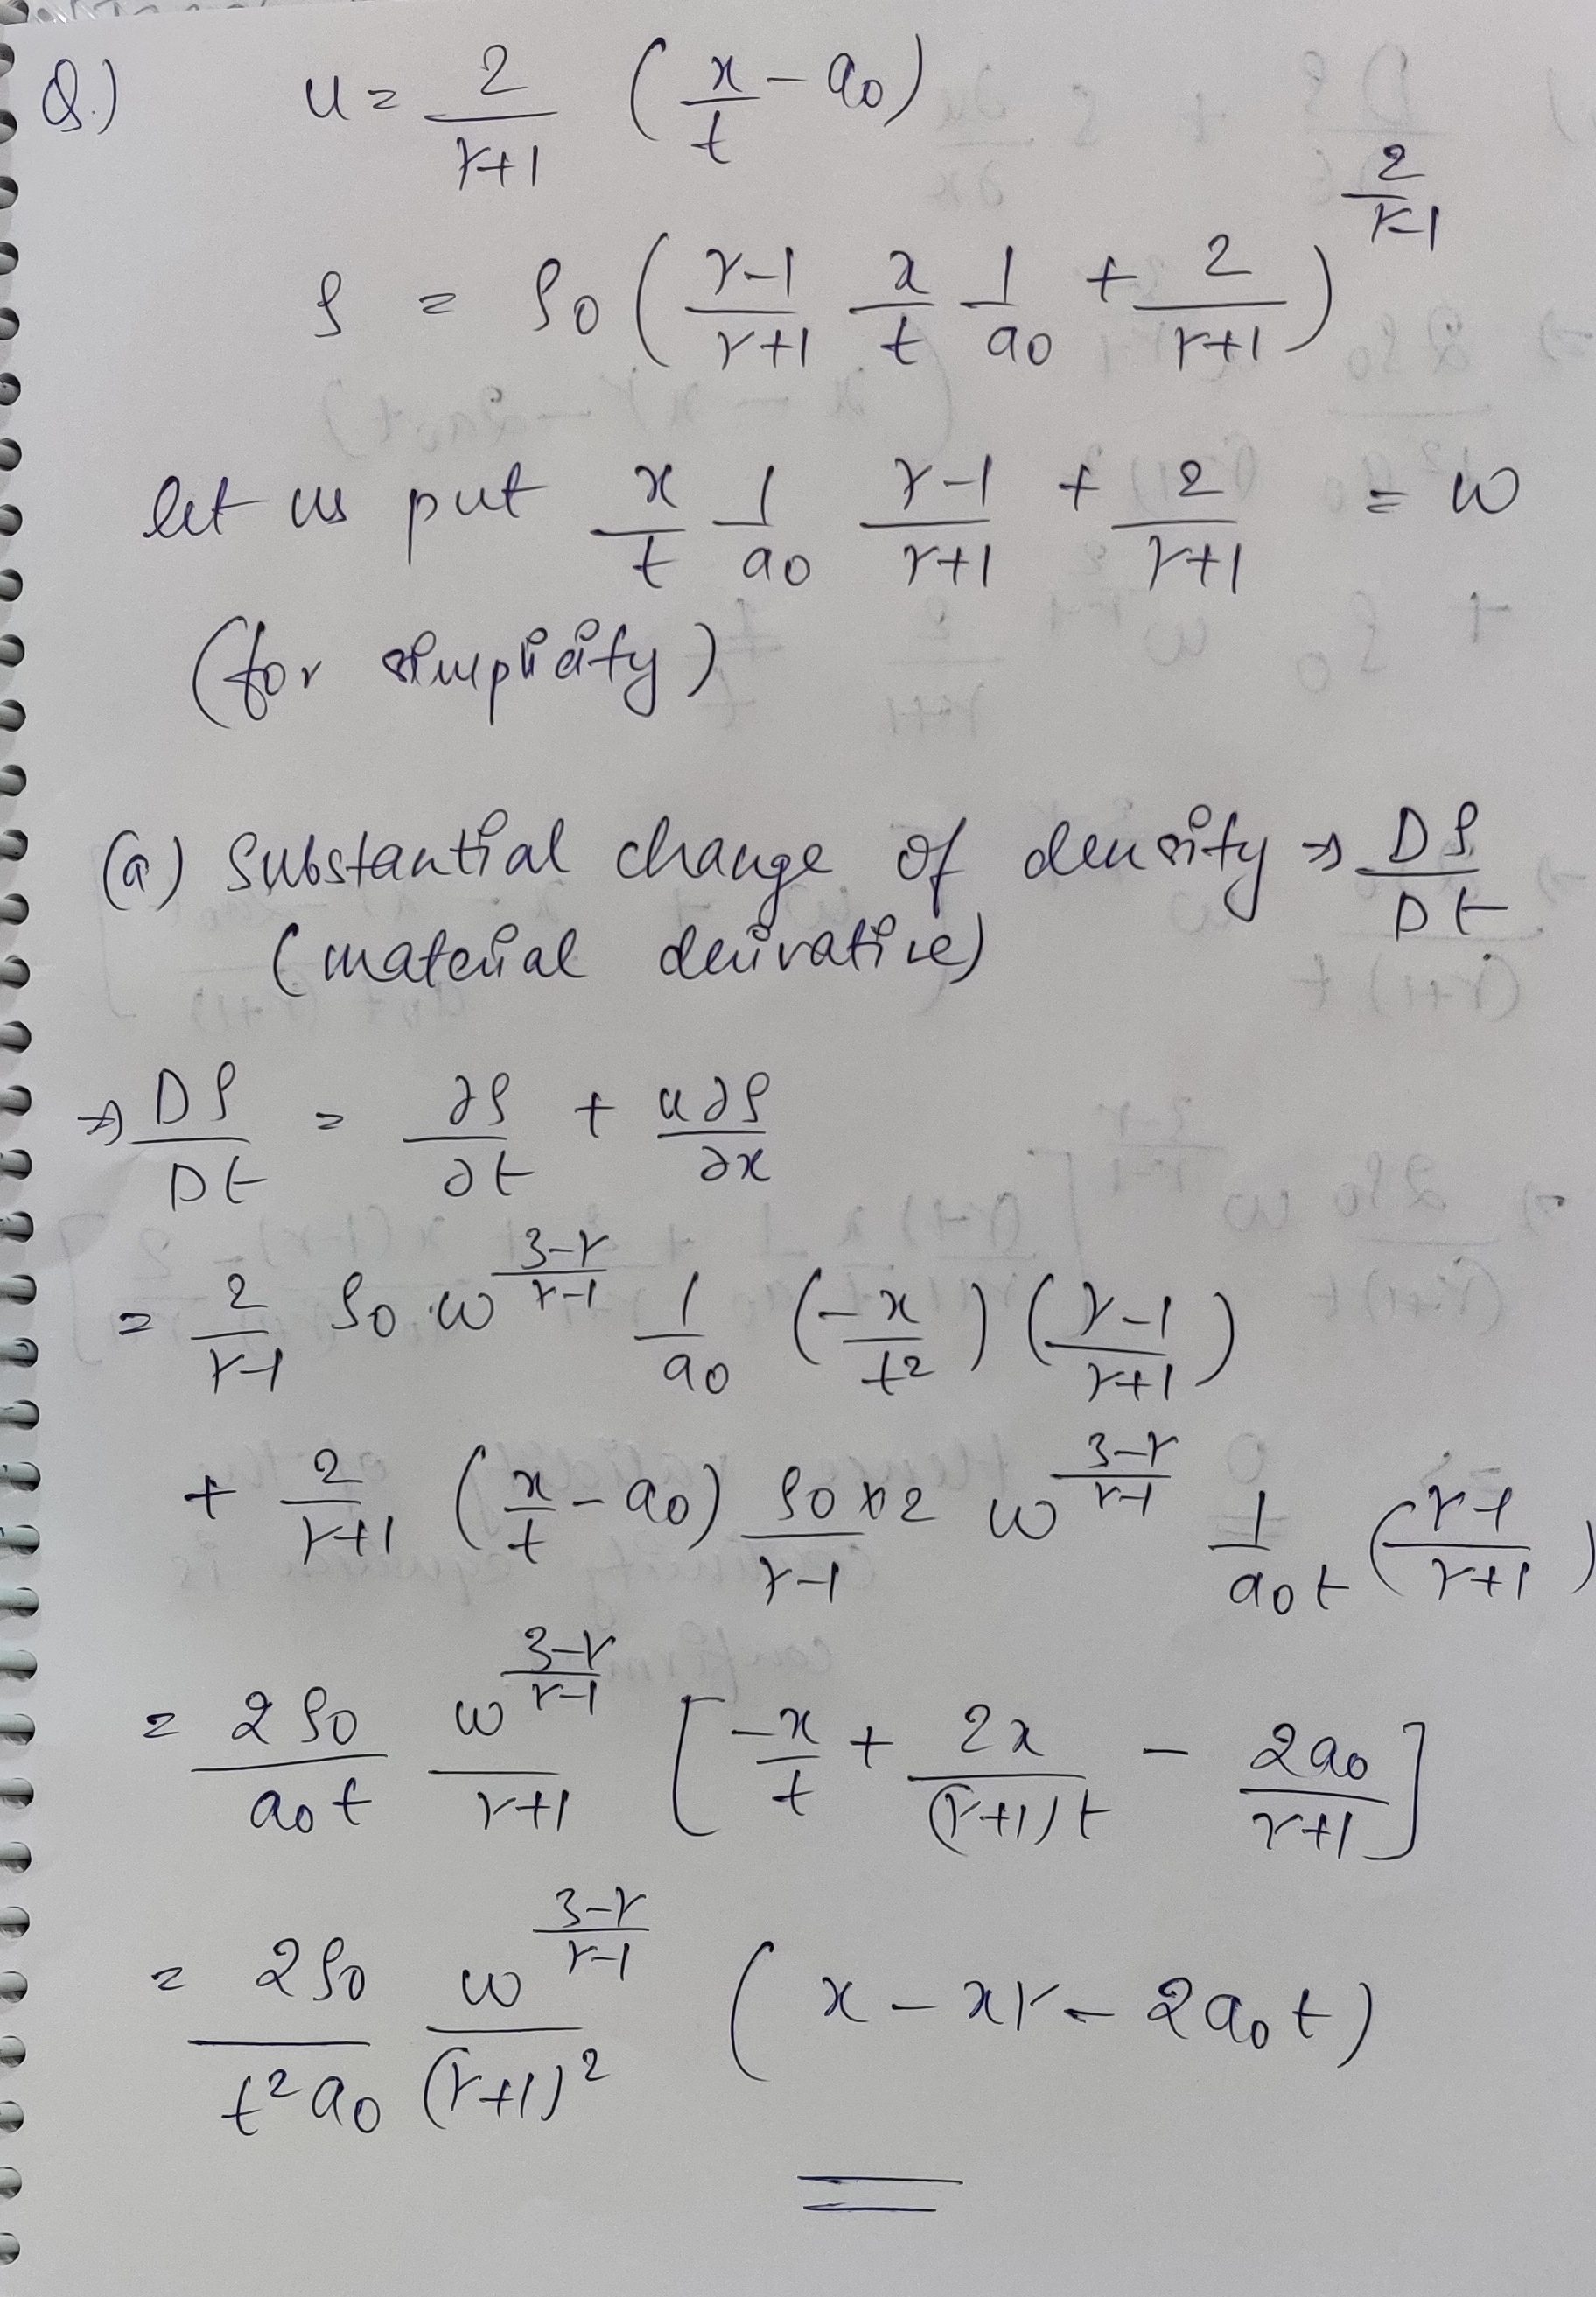 Q.) u = 2/(γ+1) (x/t - a0)
ρ = ρ0 ( (γ-1)/(γ+1) x/t 1/a0 + 2/(γ+1) )^(2/(γ-1))
let us put x/t 1/a0 (γ-1)/(γ+1) + 2/(γ+1) = w
(for simplicity)
(a) Substantial change of density → Dρ/Dt
(material derivative)
⇒ Dρ/Dt = ∂ρ/∂t + u∂ρ/∂x
= 2/(γ-1) ρ0 w^((3-γ)/(γ-1)) 1/a0 (-x/t²) ((γ-1)/(γ+1))
+ 2/(γ+1) (x/t - a0) (ρ0 × 2)/(γ-1) w^((3-γ)/(γ-1)) 1/(a0t) ((γ-1)/(γ+1))
= 2ρ0/(a0t) w^((3-γ)/(γ-1))/(γ+1) [ -x/t + 2x/((γ+1)t) - 2a0/(γ+1) ]
= 2ρ0/(t²a0) w^((3-γ)/(γ-1))/(γ+1)² (x - xγ - 2a0t)